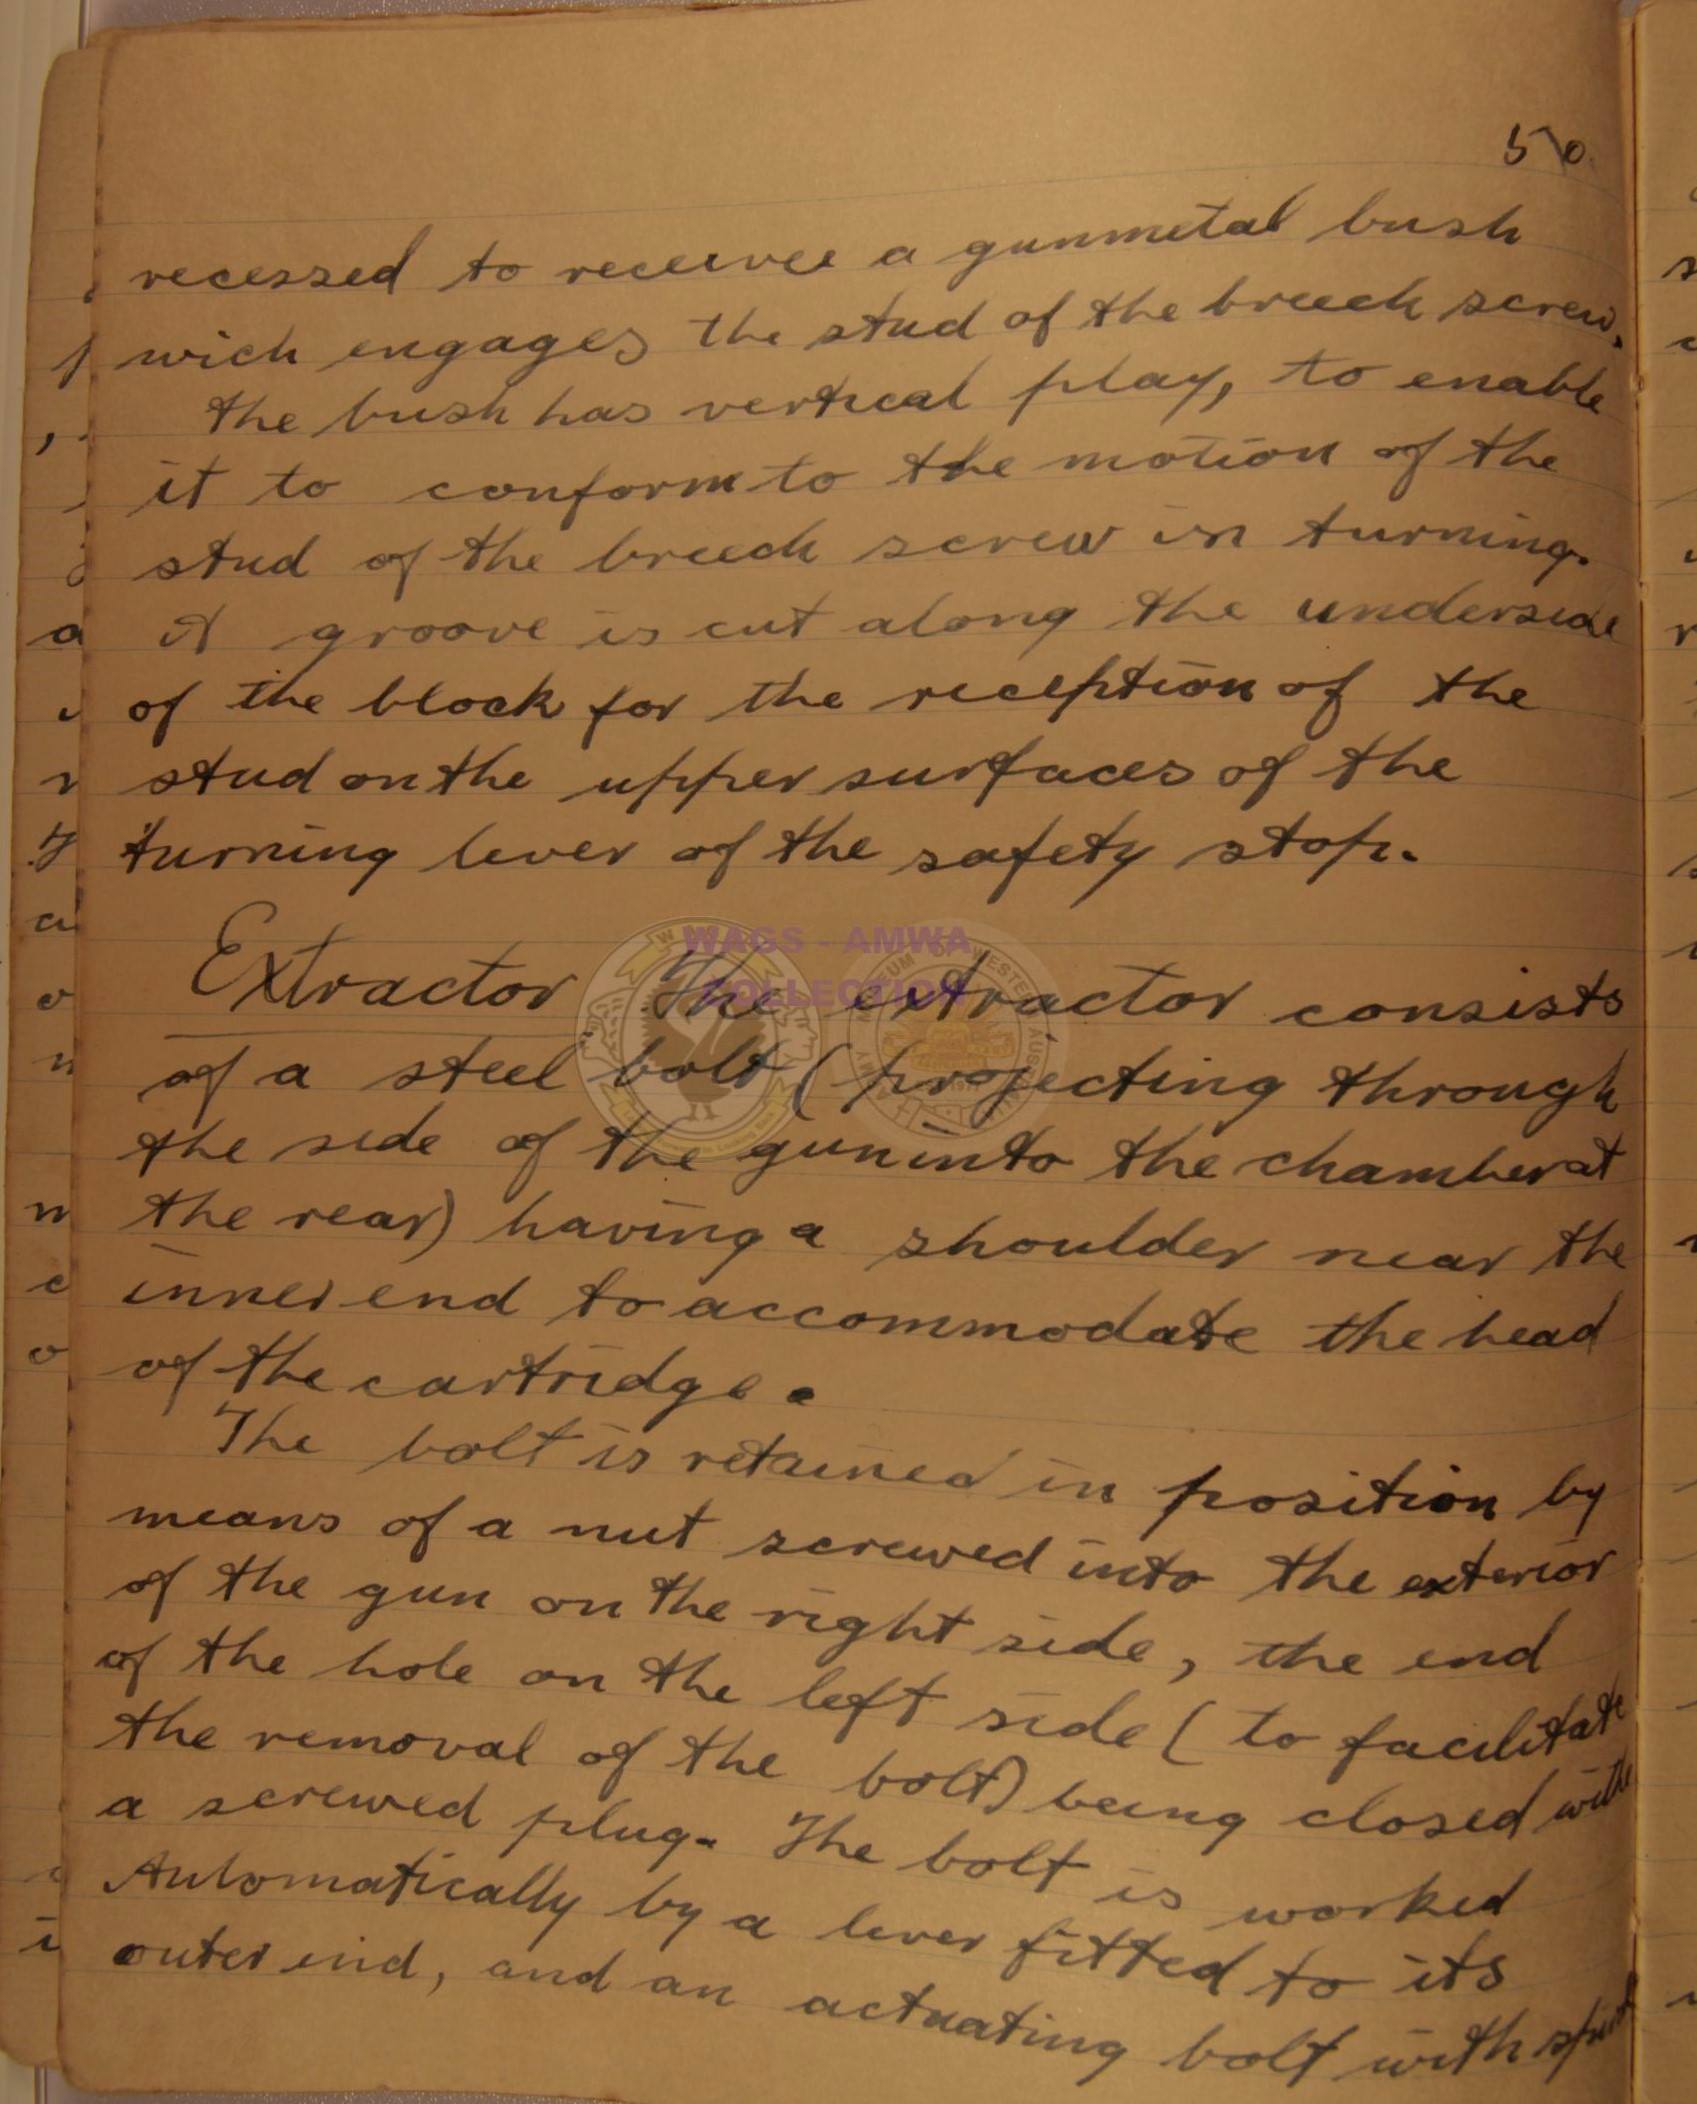 50
recessed to receivee a gunmetal bush
wich engages the stud of the breech screw,
the bush has vertical play, to enable
it to conform to the motion of the
stud of the breech screw in turning.
A groove is cut along the underside
of the block for the reception of the
stud on the upper surfaces of the
turning lever of the safety stop.
WAGS - AMWA
COLLECTION
Extractor The extractor consists
of a steel bolt (projecting through
the side of the gun into the chamber at
the rear) having a shoulder near the
inner end to accommodate the head
of the cartridge.
The bolt is retained in position by
means of a nut screwed into the exterior
of the gun on the right side, the end
of the hole on the left side (to facilitate
the removal of the bolt) being closed with
a screwed plug. The bolt is worked
Automatically by a lever fitted to its
outer end, and an actuating bolt with